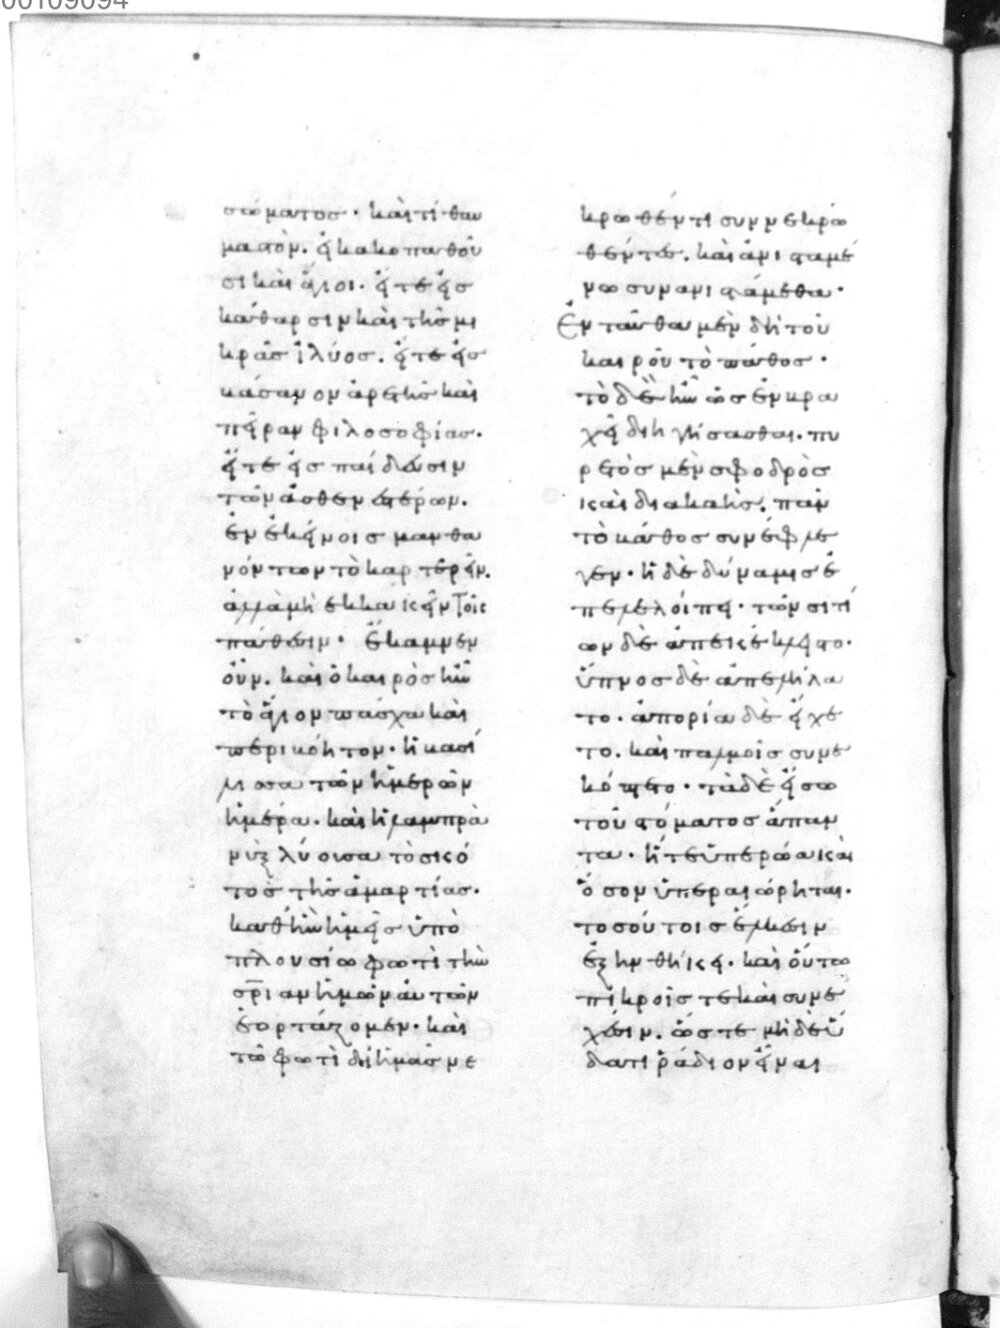 00109094
σώματος· καὶ τί θαυ
μαστὸν. εἰ κακοπαθοῦ
σι καὶ ἅγιοι· εἴτε εἰς
κάθαρσιν καὶ τῆς μι
κρᾶς ἰλύος. εἴτε εἰς
βάσανον ἀρετῆς καὶ
πεῖραν φιλοσοφίας.
εἴτε εἰς παίδευσιν
τῶν ἀσθενεστέρων.
ἐν ἐκείνοις μανθα
νόντων τὸ καρτερεῖν.
ἀλλὰ μὴ ἐκκακεῖν τοῖς
πάθεσιν· ἔκαμνεν
οὖν. καὶ ὁ καιρὸς ἦν
τὸ ἅγιον πάσχα καὶ
περιβόητον· ἡ βασί
λισσα τῶν ἡμερῶν
ἡμέρα· καὶ ἡ λαμπρὰ
νὺξ λύουσα τὸ σκό
τος τῆς ἁμαρτίας.
καθ ἣν ἡμεῖς ὑπὸ
πλουσίω φωτὶ τὴν
σ̅ρ̅ι̅αν ἡμῶν αὐτῶν
ἑορτάζομεν· καὶ
τῶ φωτὶ δι ἡμᾶς νε
κρωθέντι συννεκρω
θέντες. καὶ ἀνισταμέ
νω συνανιστάμεθα·
Ἐνταῦθα μὲν δὴ τοῦ
καιροῦ τὸ πάθος·
τὸ δὲ ἦν ὡς ἐν βρα
χεῖ διηγήσασθαι. πυ
ρετὸς μὲν σφοδρὸς
καὶ διακαὴς. πᾶν
τὸ βάθος συνέφλε
γεν· ἡ δὲ δύναμις ἐ
πελελοίπει· τῶν σιτί
ων δὲ ἀπεκέκλειτο.
ὕπνος δὲ ἀπελήλα
το· ἀπορία δὲ εἴχε
το. καὶ παλμοῖς συνε
κόπτετο· τὰ δὲ εἴσω
τοῦ στόματος ἅπαν
τα· ἥ τε ὑπερώα καὶ
ὅσον ὑπεραιώρηται.
τοσούτοις ἕλκεσιν
ἐξηνθήκει· καὶ οὕτω
πικροῖς τε καὶ συνε
χέσιν. ὥστε μηδὲ ὕ
δατι ῥάδιον εἶναι